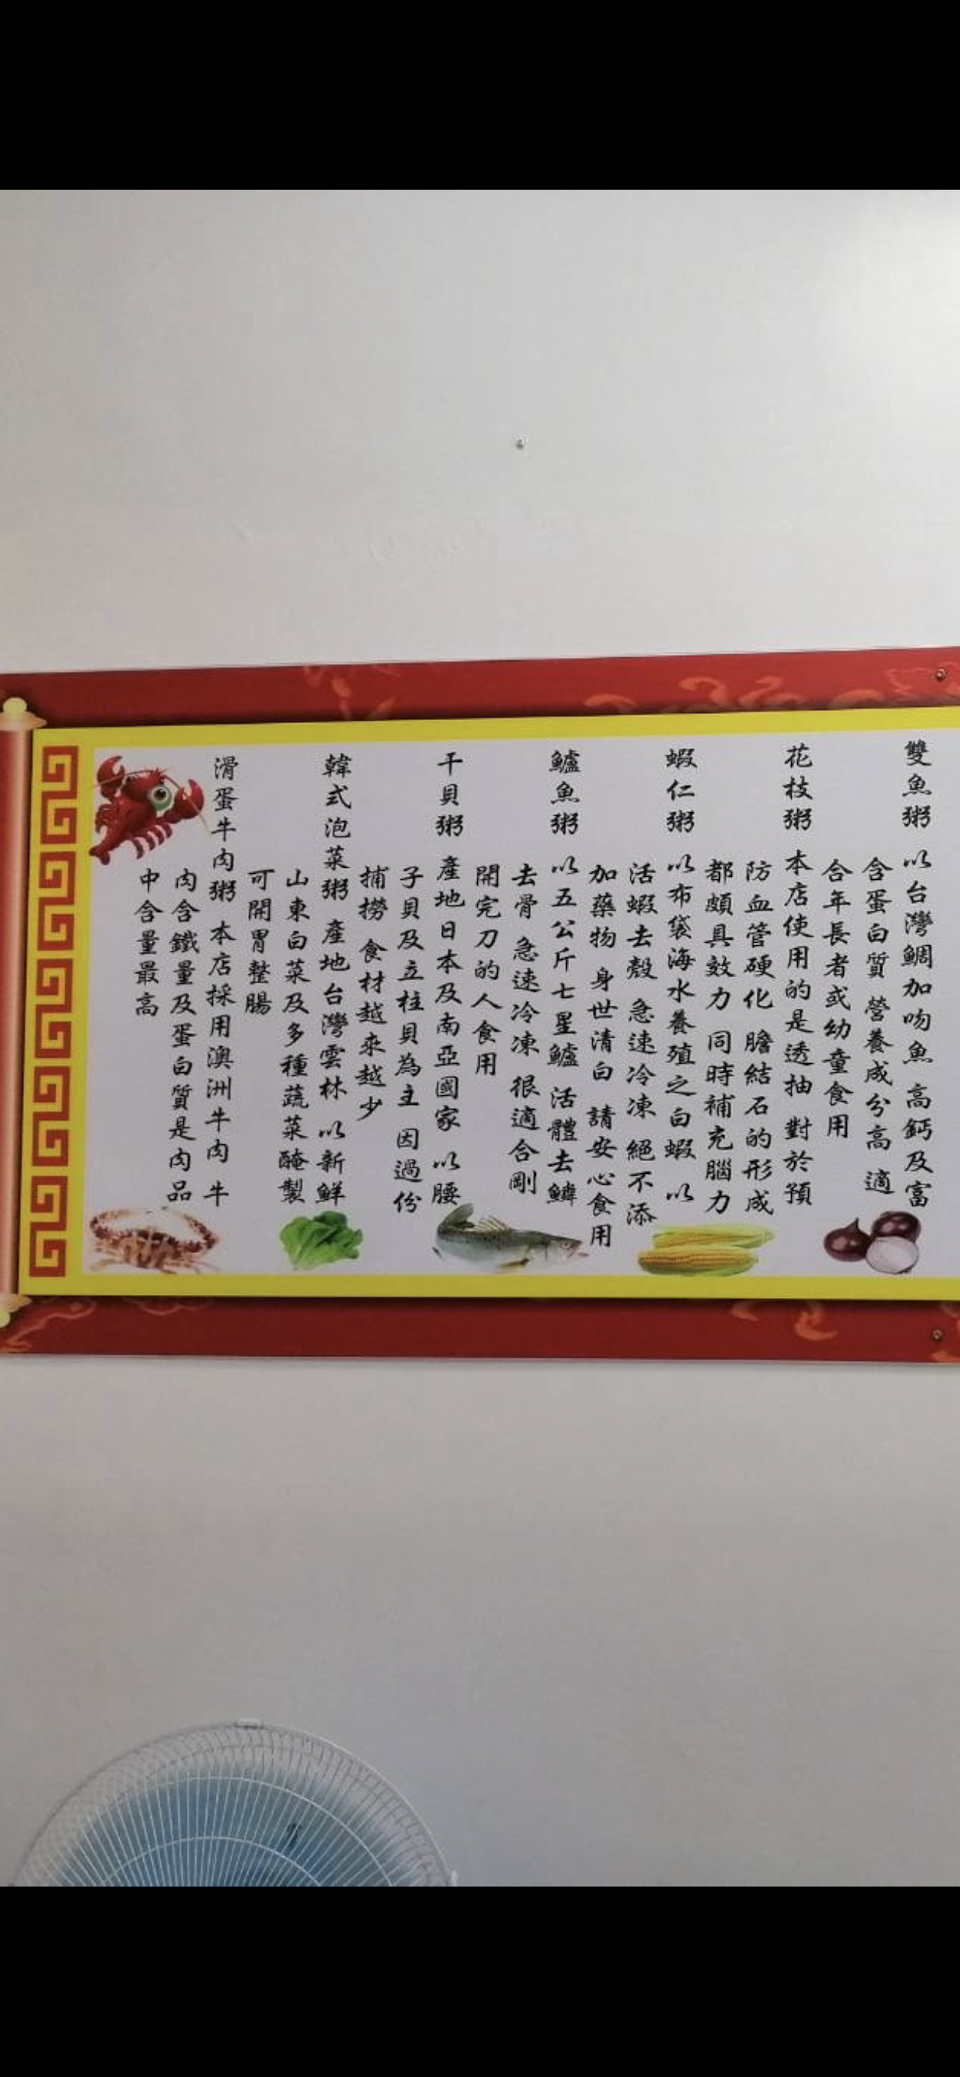 雙魚粥 以台灣鯛加吻魚 高鈣及富
含蛋白質 營養成分高 適
合年長者或幼童食用
花枝粥 本店使用的是透抽 對於預
防血管硬化 膽結石的形成
都頗具效力 同時補充腦力
蝦仁粥 以布袋海水養殖之白蝦 以
活蝦去殼 急速冷凍 絕不添
加藥物 身世清白 請安心食用
鱸魚粥 以五公斤七星鱸 活體去鱗
去骨 急速冷凍 很適合剛
開完刀的人食用
干貝粥 產地日本及南亞國家 以腰
子貝及立柱貝為主 因過份
捕撈 食材越來越少
韓式泡菜粥 產地台灣雲林 以新鮮
山東白菜及多種蔬菜醃製
可開胃整腸
滑蛋牛肉粥 本店採用澳洲牛肉 牛
肉含鐵量及蛋白質是肉品
中含量最高